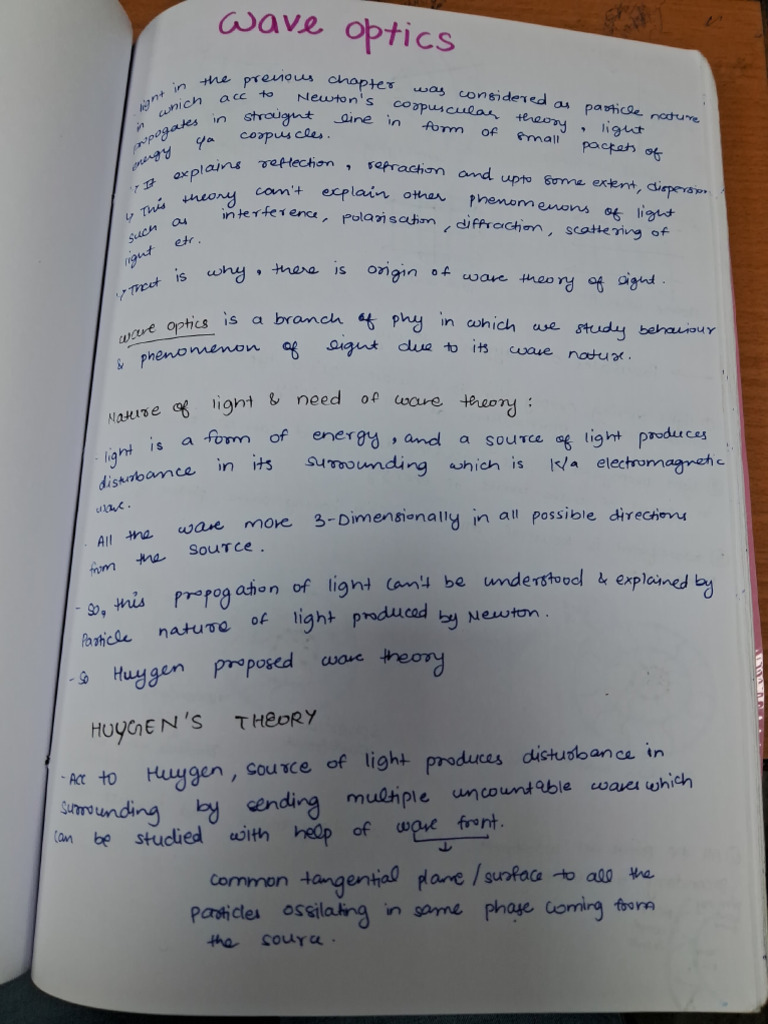 wave optics
light in the previous chapter was considered as particle nature
in which acc to Newton's corpuscular theory, light
propogates in straight line in form of small packets of
energy k/a corpuscles.
↳ It explains reflection, refraction and upto some extent, dispersion
↳ This theory can't explain other phenomenons of light
such as interference, polarisation, diffraction, scattering of
light etc.
↳ That is why, there is origin of wave theory of light.
wave optics is a branch of phy in which we study behaviour
& phenomenon of light due to its wave nature.
Nature of light & need of wave theory:
- light is a form of energy, and a source of light produces
disturbance in its surrounding which is k/a electromagnetic
wave.
- All the wave move 3-Dimensionally in all possible directions
from the source.
- So, this propogation of light can't be understood & explained by
Particle nature of light produced by Newton.
- So Huygen proposed wave theory
HUYGEN'S THEORY
- Acc to Huygen, source of light produces disturbance in
surrounding by sending multiple uncountable waves which
can be studied with help of wave front.
↓
common tangential plane/surface to all the
particles ossilating in same phase coming from
the source.